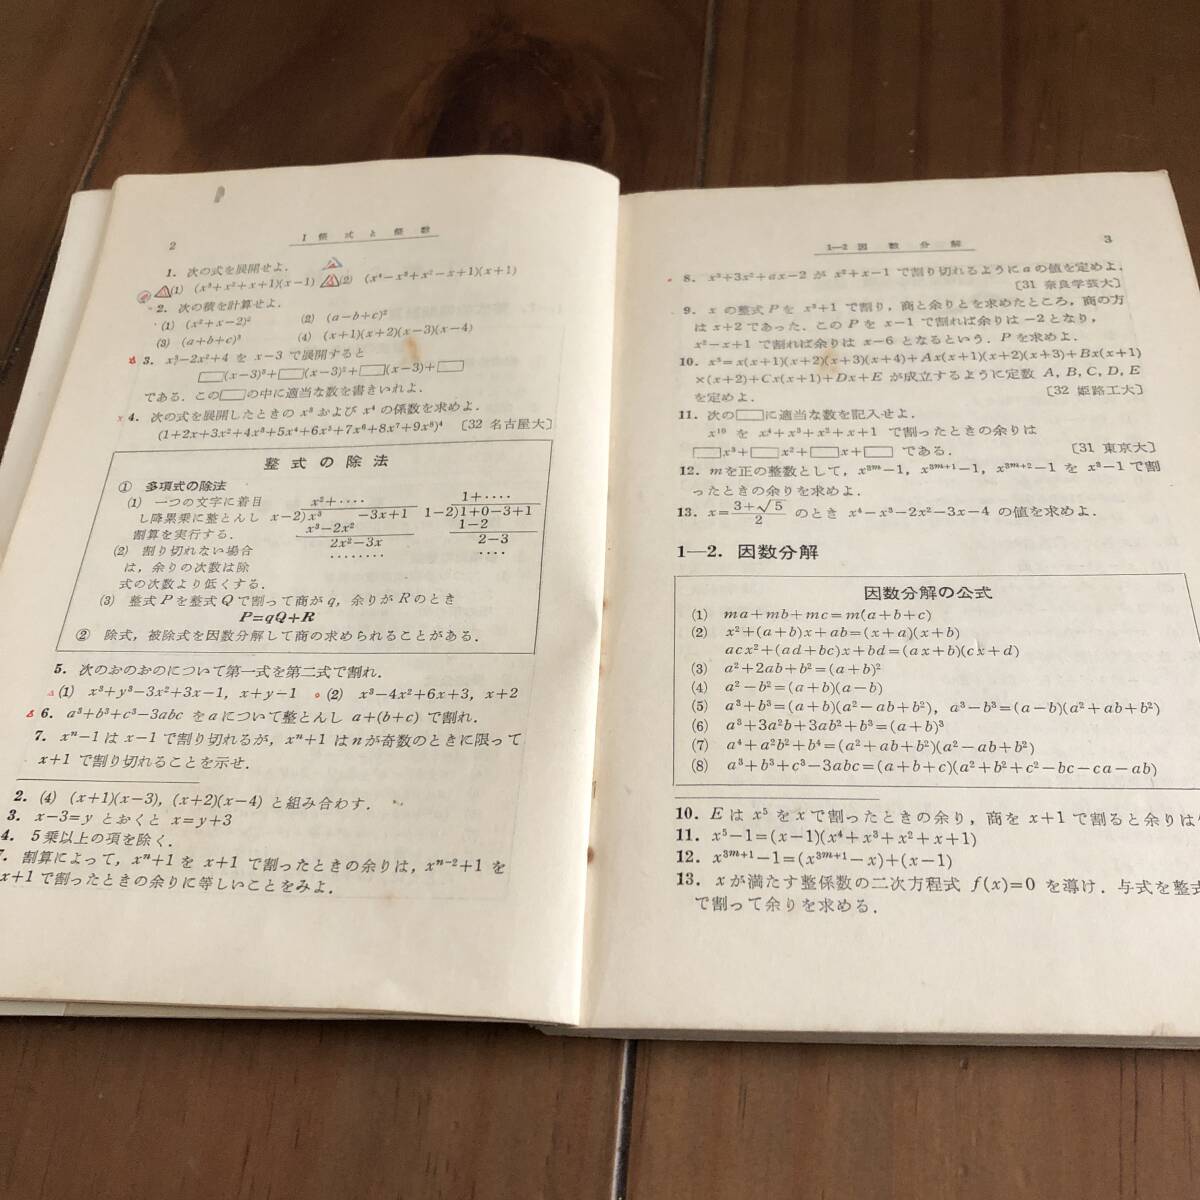 2
I 整式と整数
1. 次の式を展開せよ.
(1) (x³+x²+x+1)(x−1) (2) (x⁴−x³+x²−x+1)(x+1)
2. 次の積を計算せよ.
(1) (x²+x−2)² (2) (a−b+c)²
(3) (a+b+c)³ (4) (x+1)(x+2)(x−3)(x−4)
3. x³−2x²+4 を x−3 で展開すると
□(x−3)³+□(x−3)²+□(x−3)+□
である. この□の中に適当な数を書きいれよ.
4. 次の式を展開したときの x³ および x⁴ の係数を求めよ.
(1+2x+3x²+4x³+5x⁴+6x⁵+7x⁶+8x⁷+9x⁸)⁴ 〔32 名古屋大〕
整式の除法
① 多項式の除法
(1) 一つの文字に着目
し降累乗に整とんし
割算を実行する.
(2) 割り切れない場合
は, 余りの次数は除
式の次数より低くする.
x²+‥‥
x−2)x³ −3x+1
x³−2x²
2x²−3x
‥‥‥‥
1+‥‥
1−2)1+0−3+1
1−2
2−3
‥‥
(3) 整式 P を整式 Q で割って商が q, 余りが R のとき
P=qQ+R
② 除式, 被除式を因数分解して商の求められることがある.
5. 次のおのおのについて第一式を第二式で割れ.
(1) x³+y³−3x²+3x−1, x+y−1 (2) x³−4x²+6x+3, x+2
6. a³+b³+c³−3abc を a について整とんし a+(b+c) で割れ.
7. xⁿ−1 は x−1 で割り切れるが, xⁿ+1 は n が奇数のときに限って
x+1 で割り切れることを示せ.
2. (4) (x+1)(x−3), (x+2)(x−4) と組み合わす.
3. x−3=y とおくと x=y+3
4. 5乗以上の項を除く.
7. 割算によって, xⁿ+1 を x+1 で割ったときの余りは, xⁿ⁻²+1 を
x+1 で割ったときの余りに等しいことをみよ.
1—2 因数分解
3
8. x³+3x²+ax−2 が x²+x−1 で割り切れるように a の値を定めよ.
〔31 奈良学芸大〕
9. x の整式 P を x³+1 で割り, 商と余りとを求めたところ, 商の方
は x+2 であった. この P を x−1 で割れば余りは −2 となり,
x²−x+1 で割れば余りは x−6 となるという. P を求めよ.
10. x⁵=x(x+1)(x+2)(x+3)(x+4)+Ax(x+1)(x+2)(x+3)+Bx(x+1)
×(x+2)+Cx(x+1)+Dx+E が成立するように定数 A, B, C, D, E
を定めよ. 〔32 姫路工大〕
11. 次の□に適当な数を記入せよ.
x¹⁰ を x⁴+x³+x²+x+1 で割ったときの余りは
□x³+□x²+□x+□ である. 〔31 東京大〕
12. m を正の整数として, x³ᵐ−1, x³ᵐ⁺¹−1, x³ᵐ⁺²−1 を x³−1 で割
ったときの余りを求めよ.
13. x=(3+√5)/2 のとき x⁴−x³−2x²−3x−4 の値を求めよ.
1—2. 因数分解
因数分解の公式
(1) ma+mb+mc=m(a+b+c)
(2) x²+(a+b)x+ab=(x+a)(x+b)
acx²+(ad+bc)x+bd=(ax+b)(cx+d)
(3) a²+2ab+b²=(a+b)²
(4) a²−b²=(a+b)(a−b)
(5) a³+b³=(a+b)(a²−ab+b²), a³−b³=(a−b)(a²+ab+b²)
(6) a³+3a²b+3ab²+b³=(a+b)³
(7) a⁴+a²b²+b⁴=(a²+ab+b²)(a²−ab+b²)
(8) a³+b³+c³−3abc=(a+b+c)(a²+b²+c²−bc−ca−ab)
10. E は x⁵ を x で割ったときの余り, 商を x+1 で割ると余りは
11. x⁵−1=(x−1)(x⁴+x³+x²+x+1)
12. x³ᵐ⁺¹−1=(x³ᵐ⁺¹−x)+(x−1)
13. x が満たす整係数の二次方程式 f(x)=0 を導け. 与式を整式
で割って余りを求める.